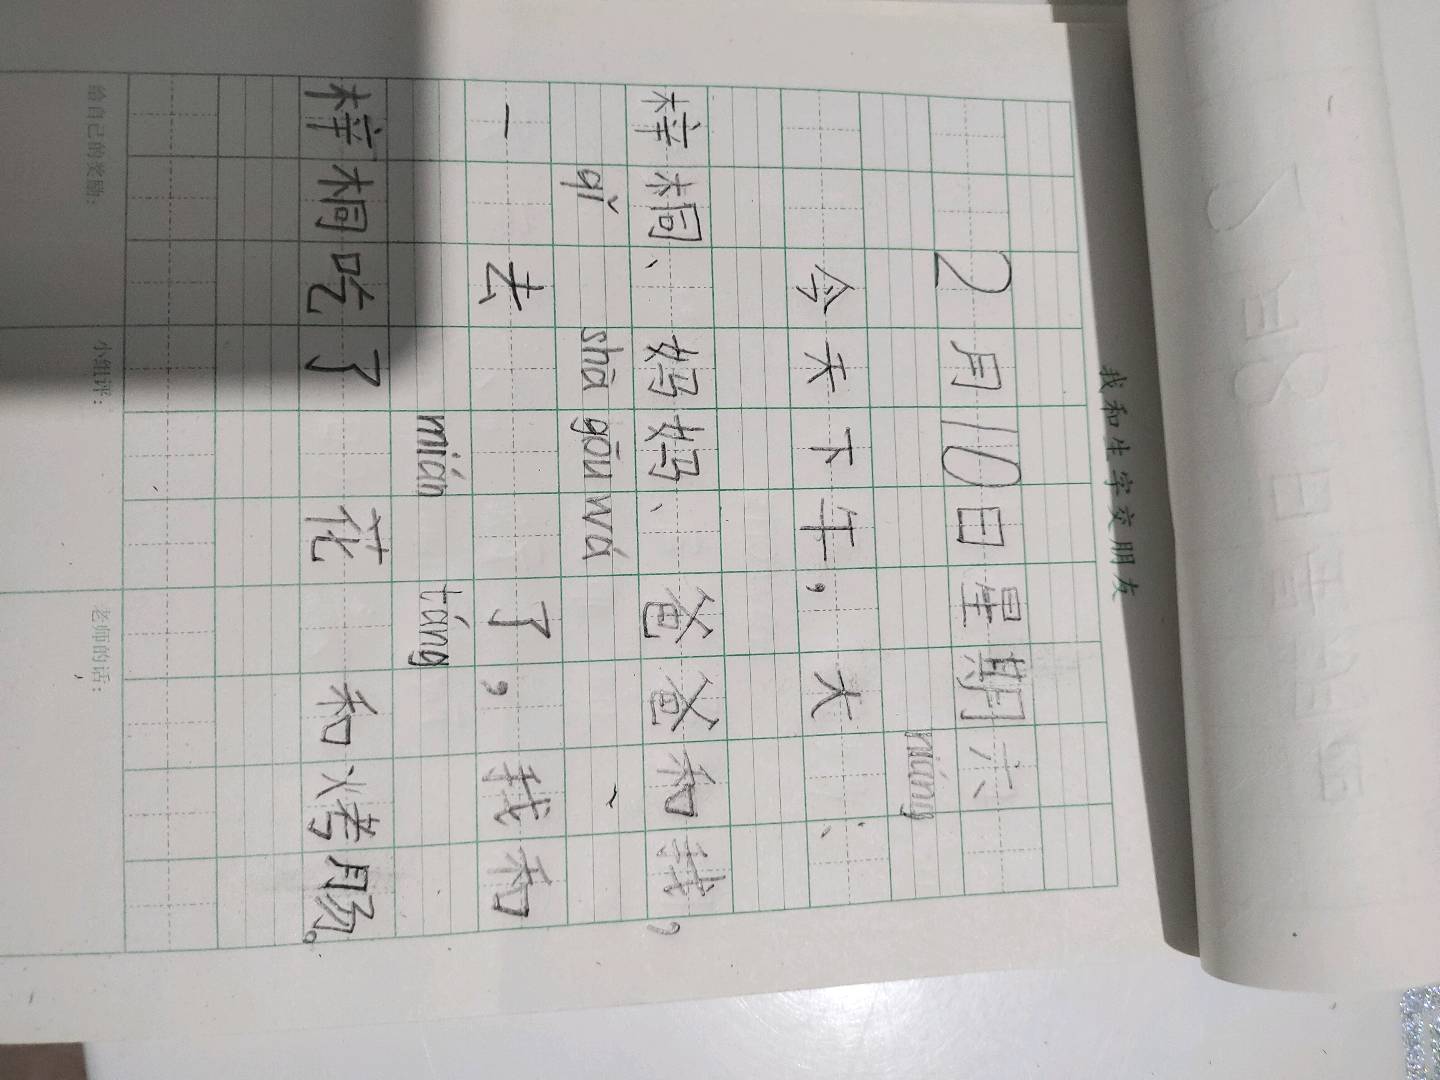 我和生字交朋友
2月10日星期六
niáng
今天下午，大、
梓桐、妈妈、爸爸和我，
qǐ shā gōu wá
一去了，我和
mián táng
梓桐吃了花和火考肠。
给自己的奖励： 小组评： 老师的话：